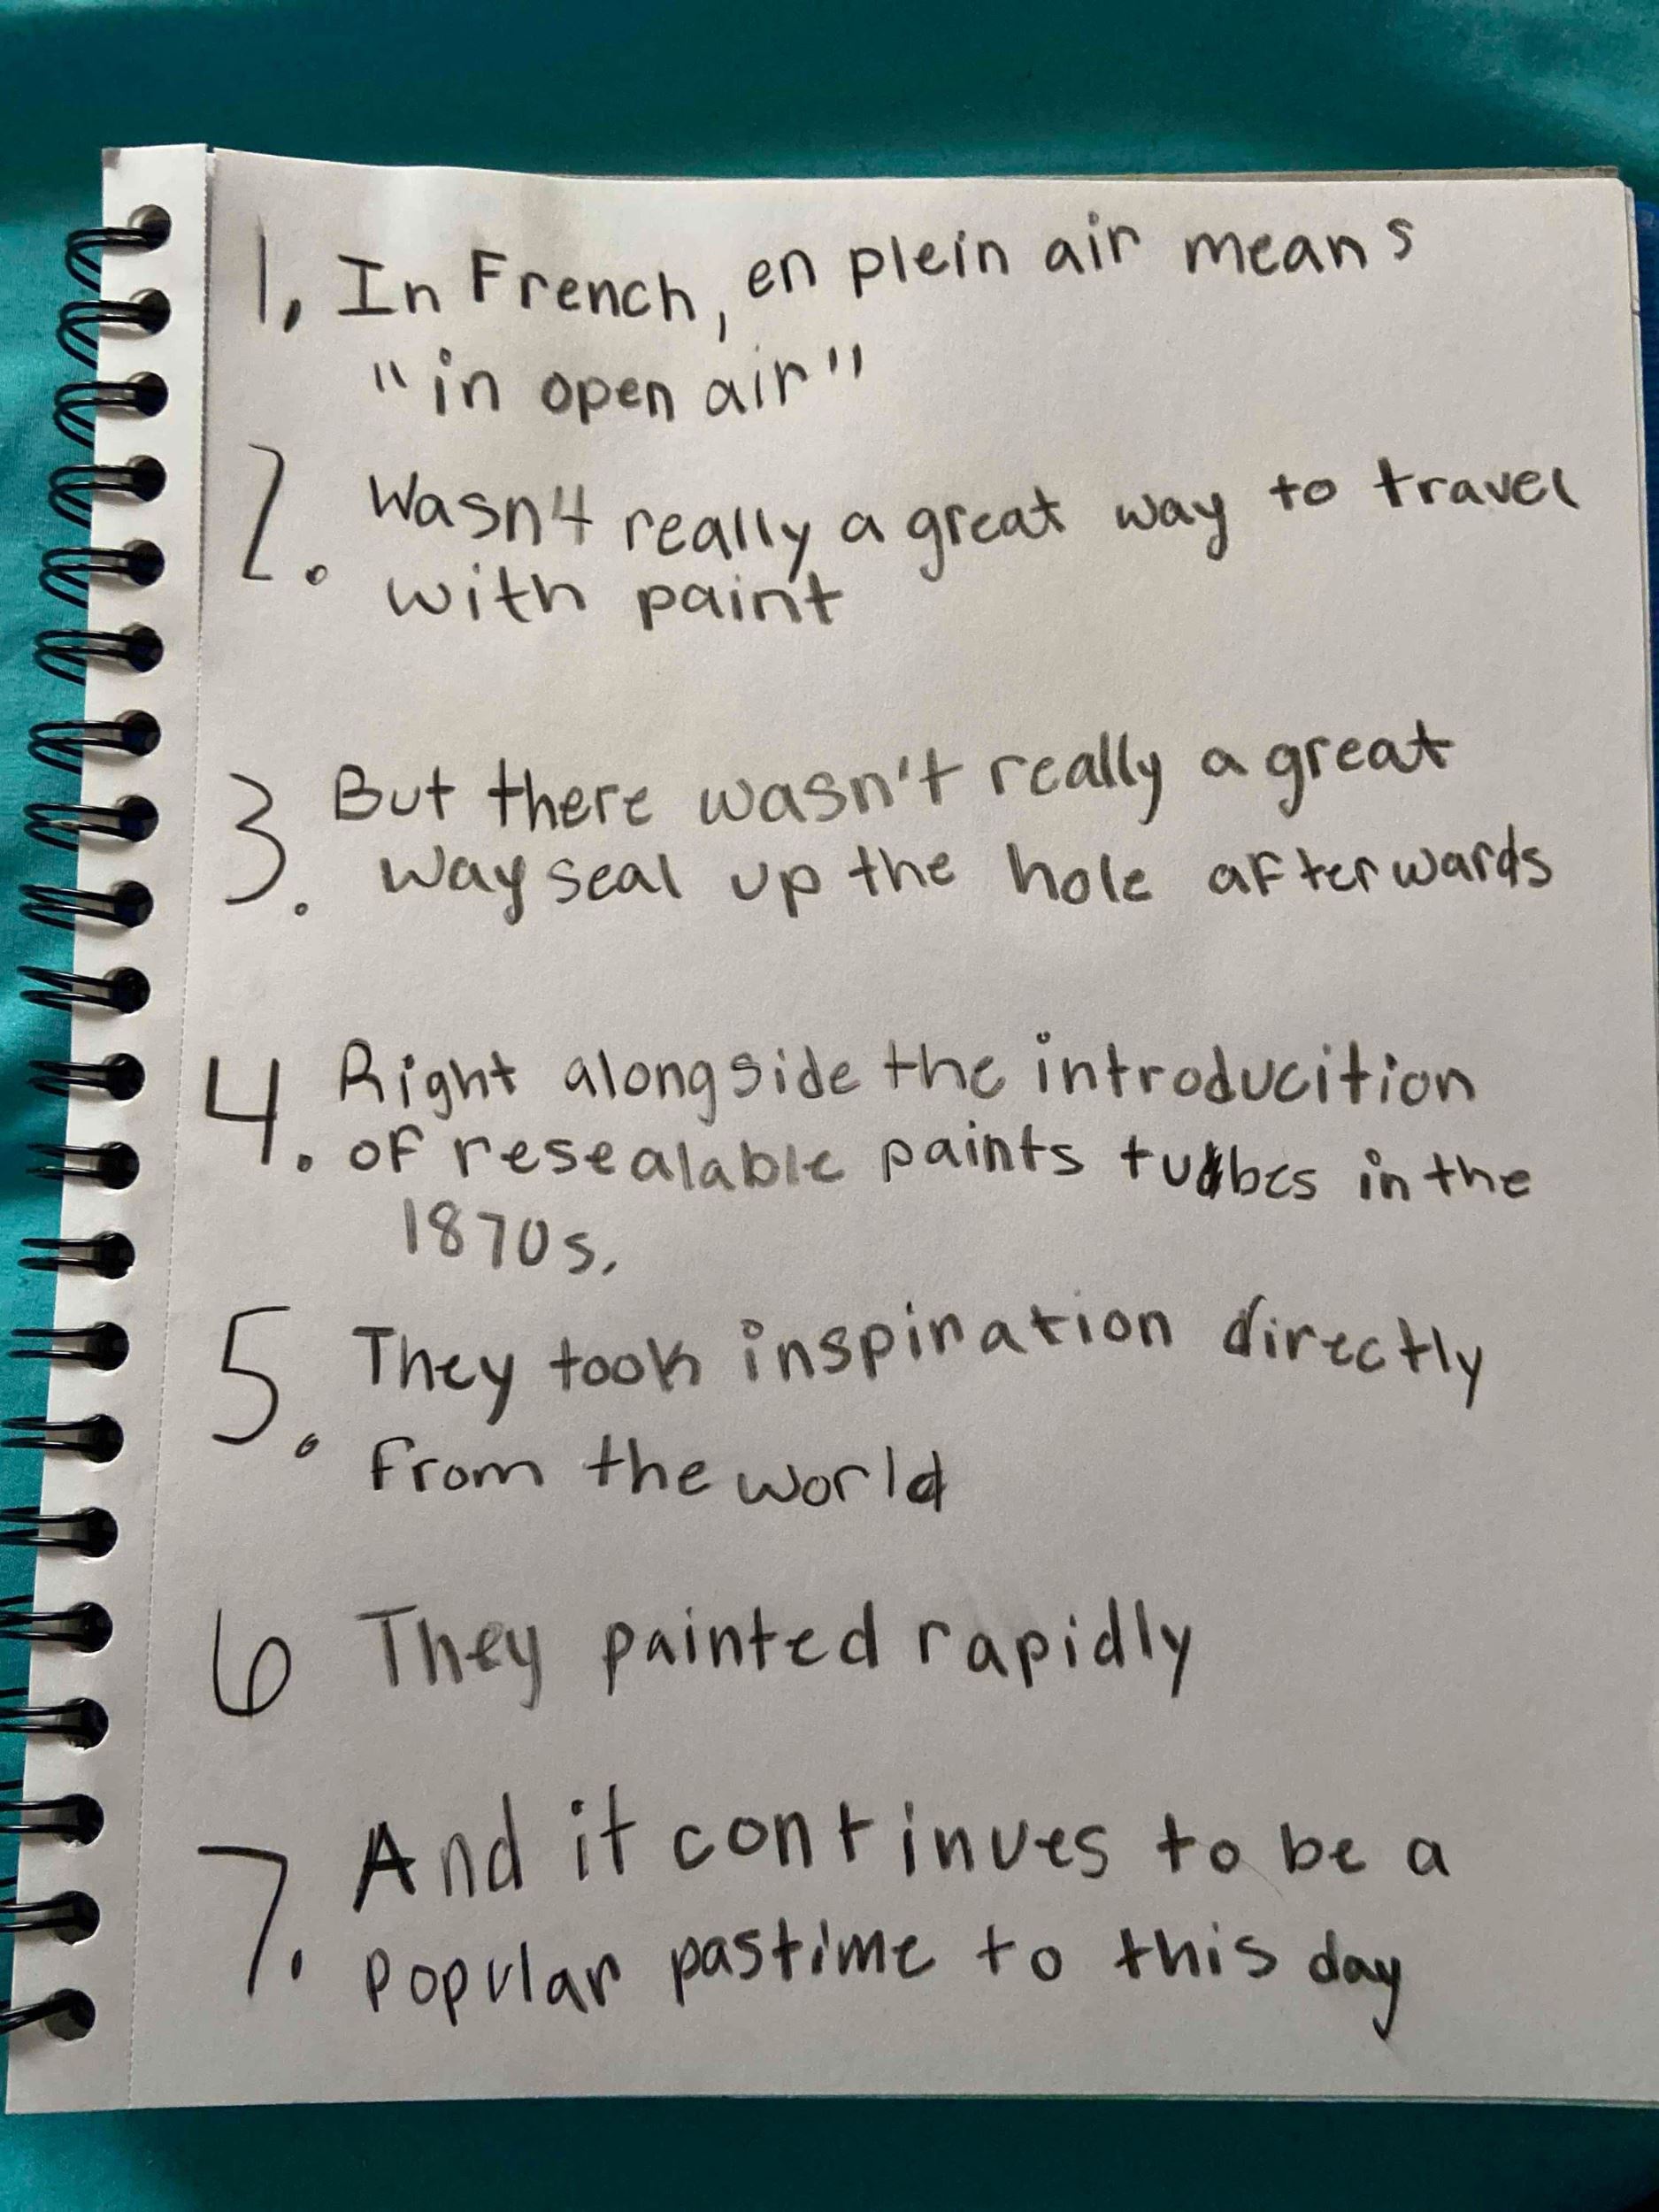 1. In French, en plein air means
"in open air"
2. Wasn4 really a great way to travel
with paint
3. But there wasn't really a great
way seal up the hole afterwards
4. Right alongside the introducition
of resealable paints tubes in the
1870s.
5. They took inspiration directly
from the world
6 They painted rapidly
7. And it continues to be a
popular pastime to this day